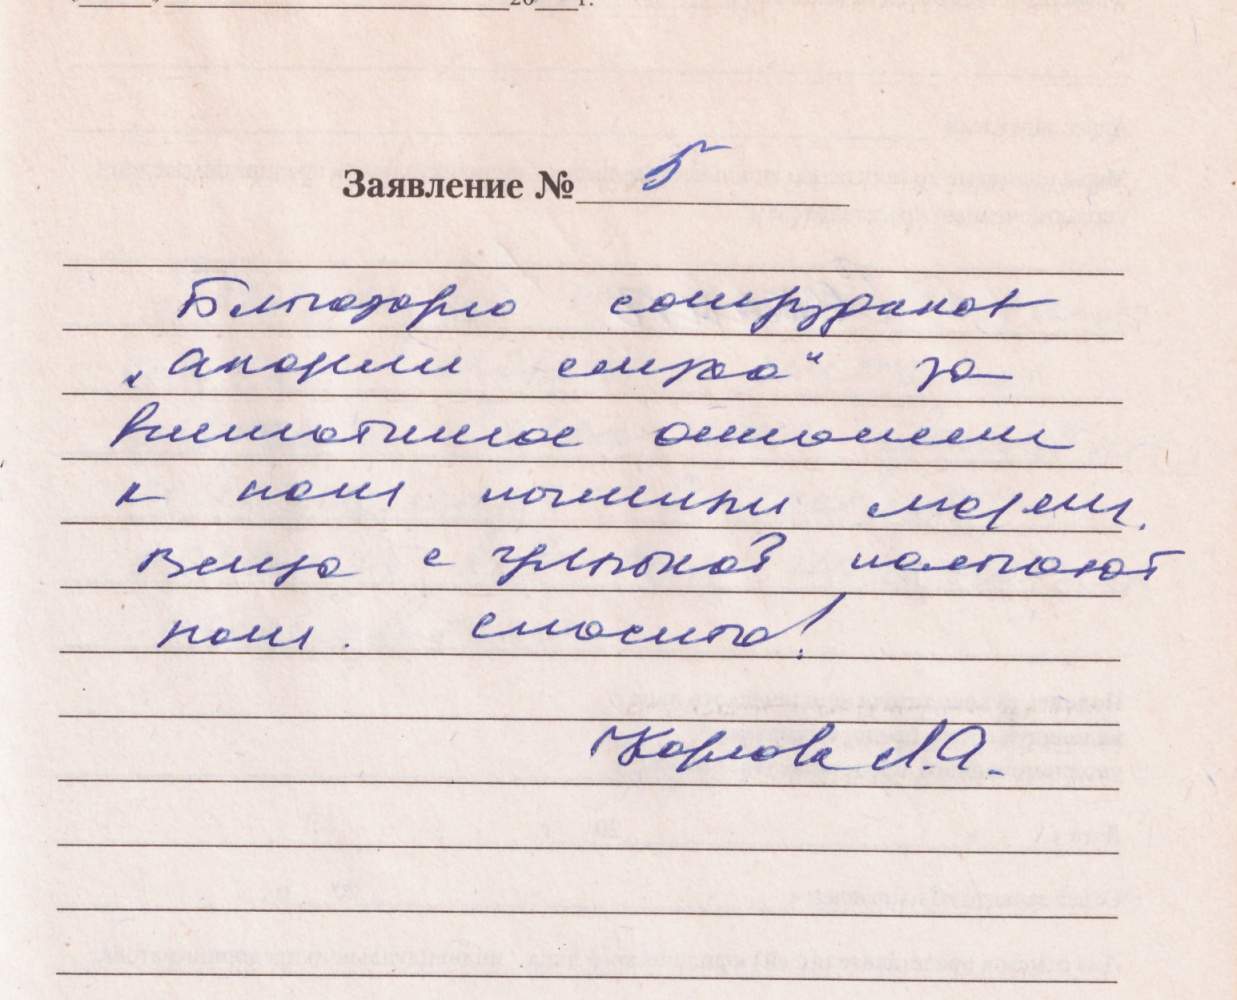 20 г.
Заявление № 5
Благодарю сотрудников
„Академии слуха“ за
внимательное отношение
к нам пожилым людям.
Всегда с улыбкой встречают
нам. Спасибо!
Карпова Л.А.